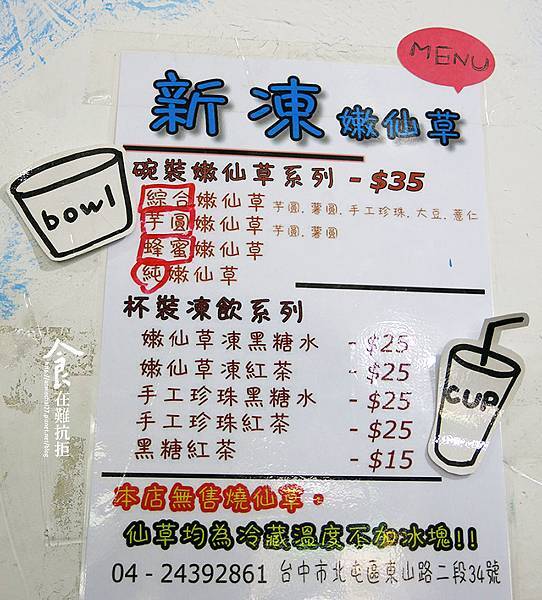 MENU
新凍嫩仙草
碗裝嫩仙草系列 - $35
bowl
綜合嫩仙草 芋圓.薯圓.手工珍珠.大豆.薏仁
芋圓嫩仙草 芋圓.薯圓
蜂蜜嫩仙草
純嫩仙草
杯裝凍飲系列
嫩仙草凍黑糖水 - $25
嫩仙草凍紅茶 - $25
手工珍珠黑糖水 - $25
手工珍珠紅茶 - $25
黑糖紅茶 - $15
CUP
食在難抗拒
本店無售燒仙草。
仙草均為冷藏溫度不加冰塊!!
04 - 24392861 台中市北屯區東山路二段34號